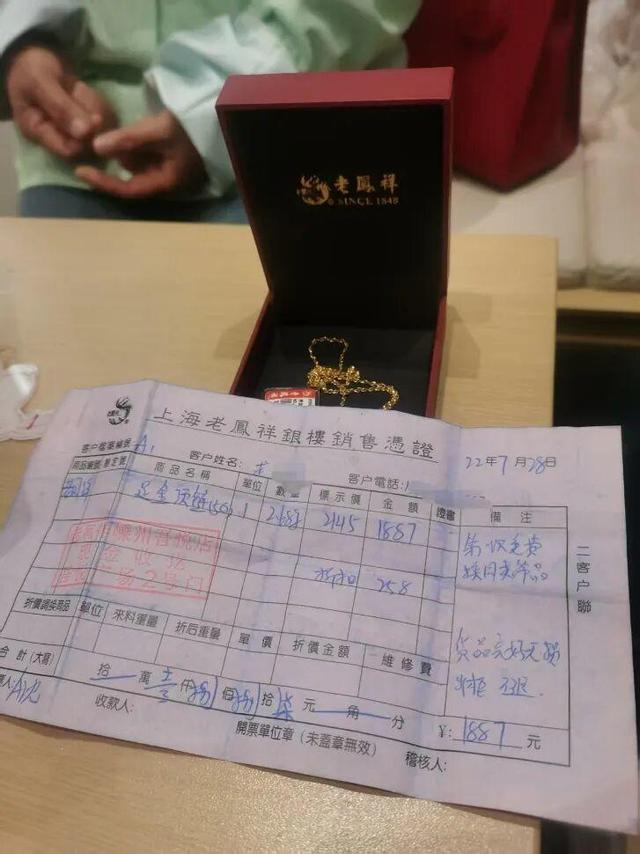 老鳳祥
SINCE 1848
上海老鳳祥銀樓銷售憑證
客户檔案編號 A1
客户姓名:
客户電話:
22年7月28日
商品編號 商品名稱 單位 數量 標示價 金額 證書 備注
足金项链 1 2.68 2145 1887
第一次免费
换同类等品
嵊州
现金收讫
2号门
折扣 258
折價調換商品 單位 來料重量 折后重量 單價 折價金額 維修費
货品完好无损
合計(大寫) 拾 萬 壹仟捌佰捌拾柒元 角 分 ¥: 1887 元
收款人:
開票單位章(未蓋章無效)
稽核人:
二客户聯